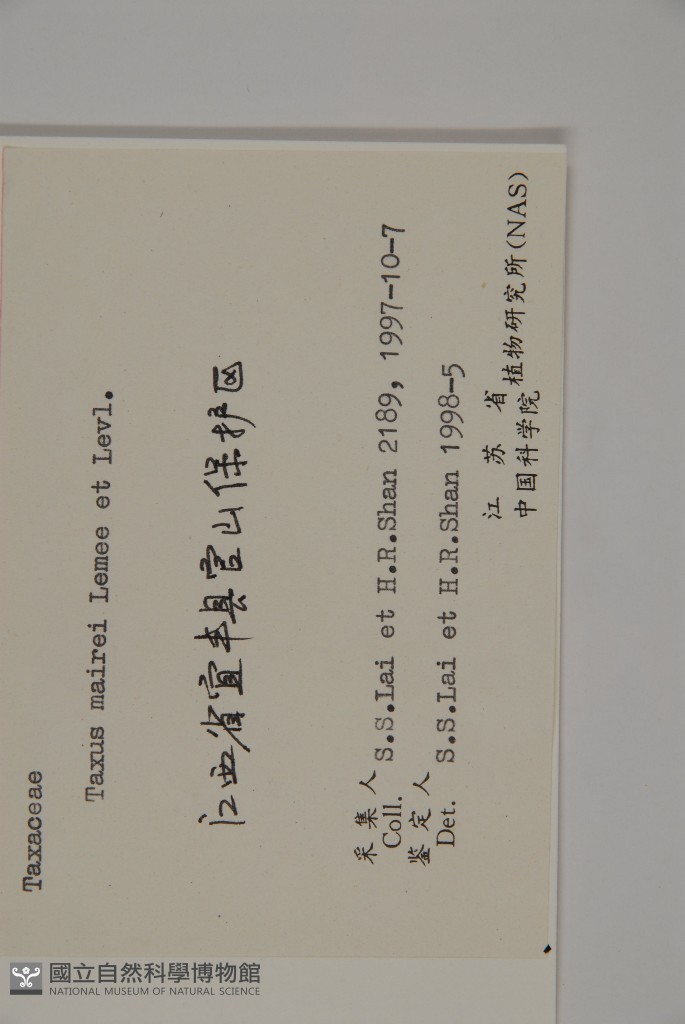 Taxaceae
Taxus mairei Lemee et Levl.
江西省宜丰县官山保护区
采集人
Coll. S.S.Lai et H.R.Shan 2189, 1997-10-7
鉴定人
Det. S.S.Lai et H.R.Shan 1998-5
江苏省
中国科学院植物研究所(NAS)
國立自然科學博物館
NATIONAL MUSEUM OF NATURAL SCIENCE